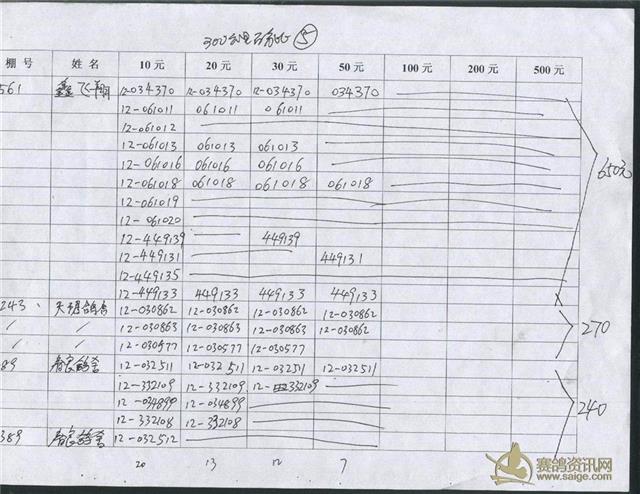 300公里 ⑤
棚号 姓名 10元 20元 30元 50元 100元 200元 500元
561 鑫飞翔 12-034370 12-034370 12-034370 034370
12-061011 061011 061011
12-061012
12-061013 061013 061013
12-061016 061016 061016
12-061018 061018 061018 061018
12-061019
12-061020
12-449139 449139
12-449131 449131
12-449135
12-449133 449133 449133 449133
650元
243 12-030862 12-030862 12-030862 12-030862
/ / 12-030863 12-030863 12-030863 12-030862
/ / 12-030577 12-030577 12-030577
270
89 12-032511 12-032511 12-032511 032511
12-332109 12-332109 12-332109
12-034899 12-034899
12-332108 332108
389 12-032512
240
20 13 12 7
赛鸽资讯网
www.saige.com